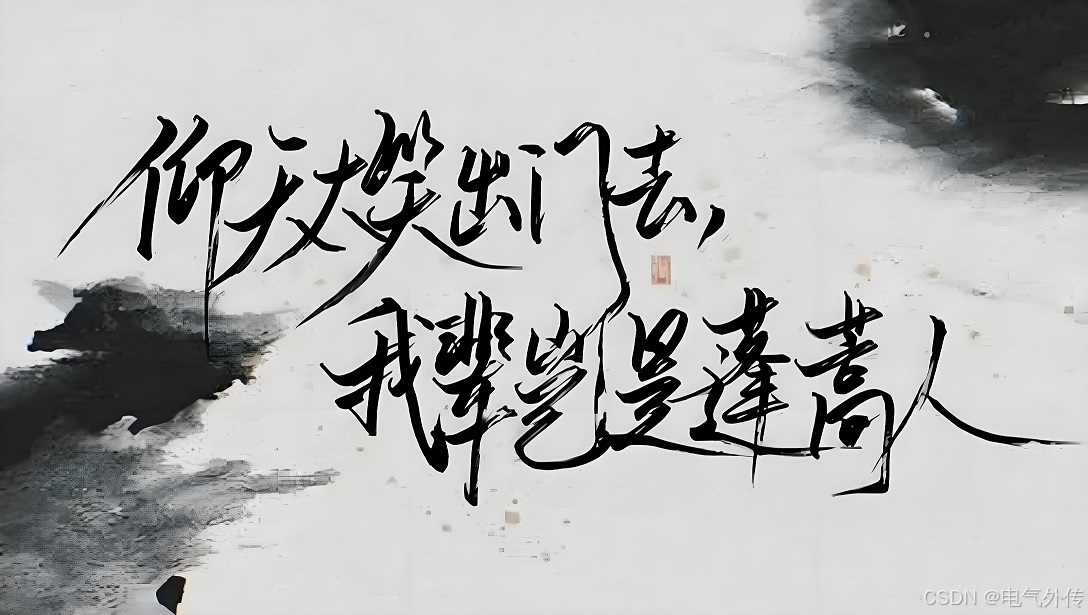 仰天大笑出门去，
我辈岂是蓬蒿人
CSDN @电气外传